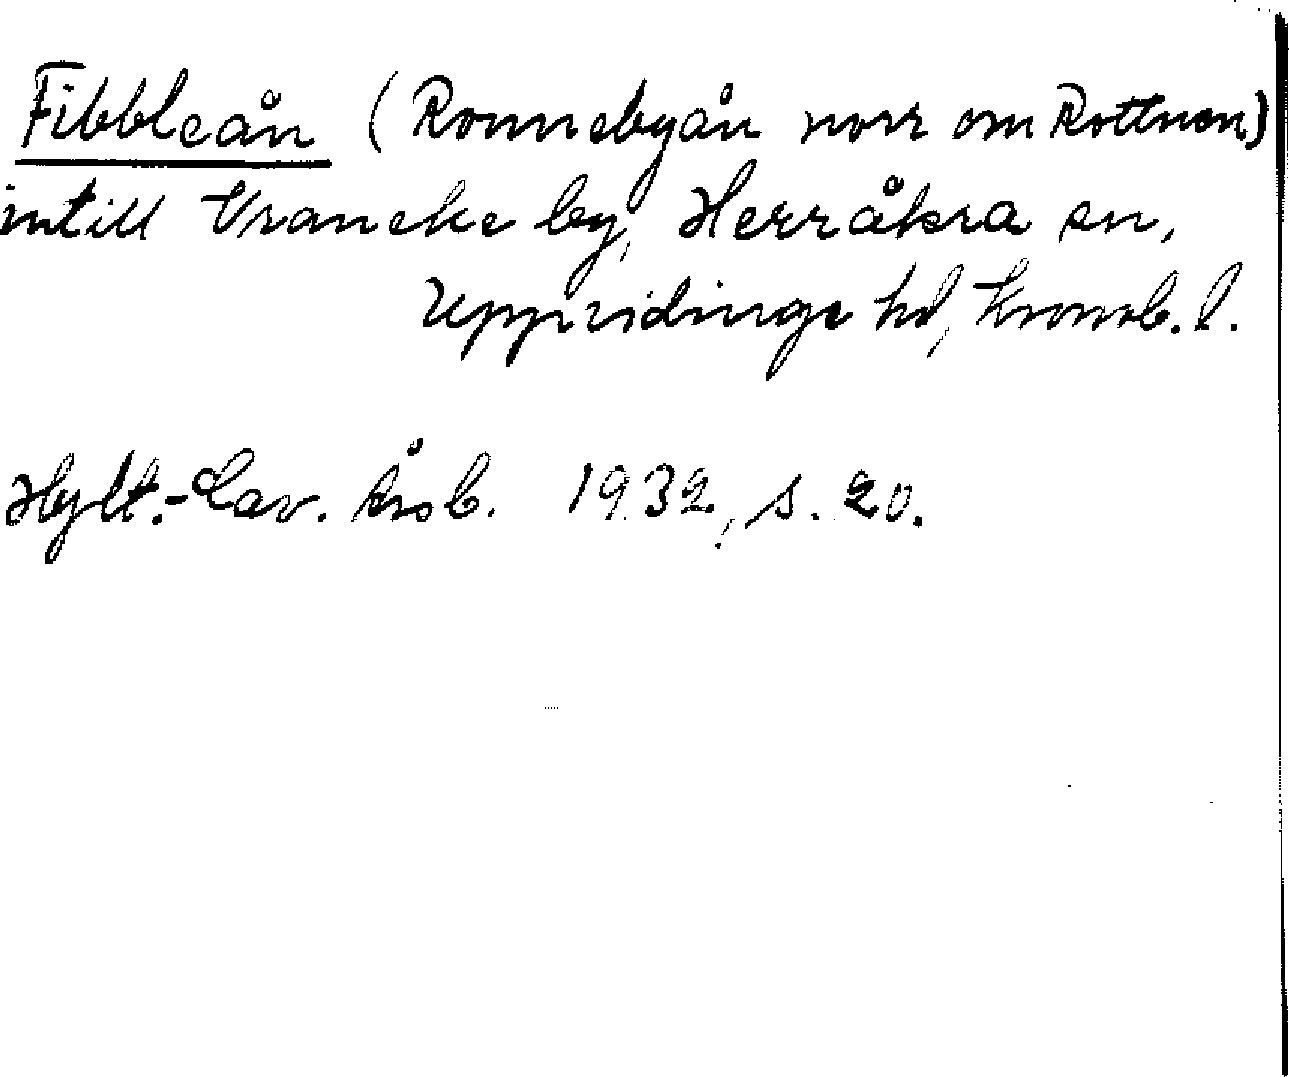 Fibbleån (Ronnebyån norr om Rottnen)
intill Vraneke by, Herråkra sn,
Uppvidinge hd, Kronob. l.
Hylt.-Cav. Årsb. 1932, s. 20.